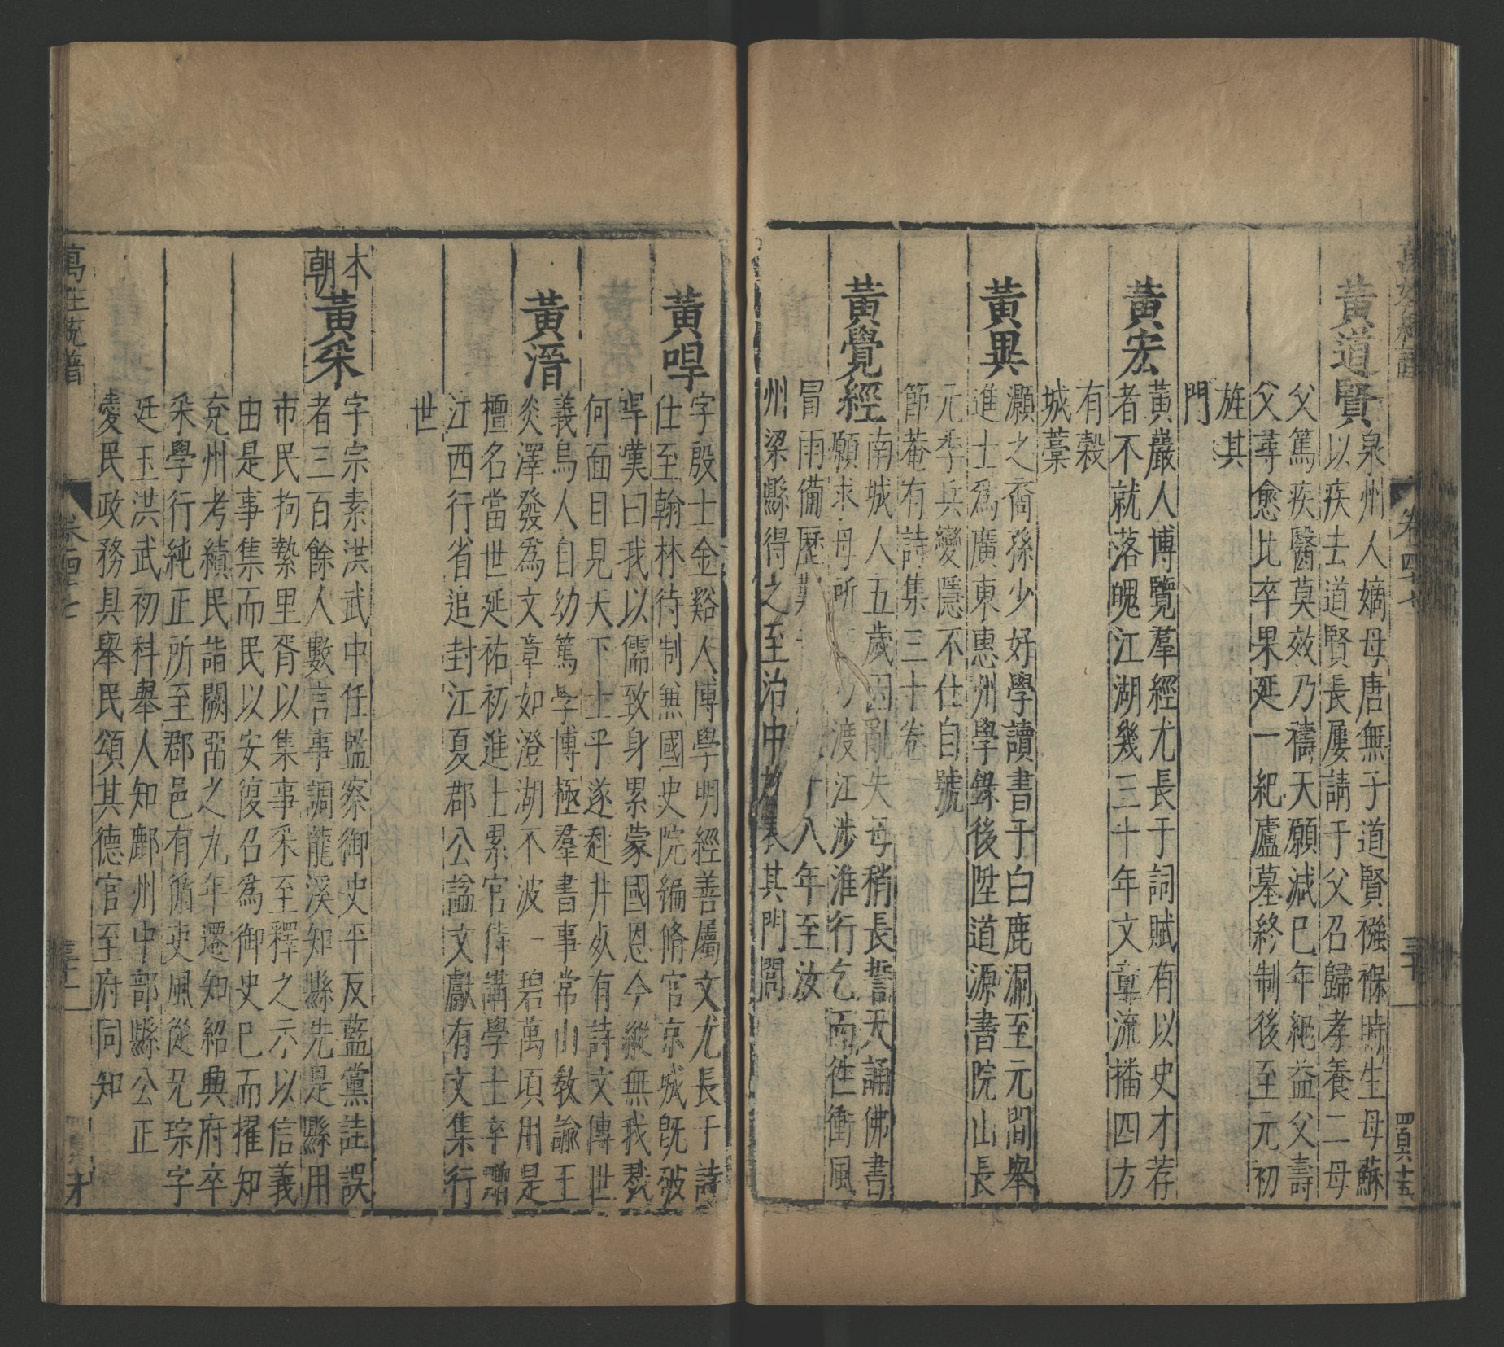 黃道賢
泉州人嫡母唐無子道賢襁褓時生母蘇
以疾去道賢長屢請于父召歸孝養二母
父篤疾醫莫效乃禱天願減己年益父壽
父尋愈比卒果延一紀廬墓終制後至元初
旌其
門
黃宏
黃巖人博覽羣經尤長于詞賦有以史才荐
者不就落魄江湖幾三十年文章流播四方
有穀
城藁
黃異
灝之裔孫少好學讀書于白鹿洞至元間舉
進士爲廣東惠州學錄後陞道源書院山長
元季兵變隱不仕自號
節菴有詩集三十卷
黃覺經
南城人五歲因亂失母稍長誓天誦佛書
願求母所 渡江涉淮行乞而徃衝風
冒雨備歷 八年至汝
州梁縣得之至治中 其門閭
黃㖔
字殷士金谿人博學明經善屬文尤長于詩
仕至翰林待制無國史院編脩官京城旣破
㖔嘆曰我以儒致身累蒙國恩今縱無我戮
何面目見天下士乎遂赴井死有詩文傳世
黃溍
義烏人自幼篤學博極羣書事常山敎諭王
炎澤發爲文章如澄湖不波一碧萬頃用是
擅名當世延祐初進士累官侍講學士卒贈
江西行省追封江夏郡公諡文獻有文集行
世
本
朝
黃釆
字宗素洪武中任監察御史平反藍黨詿誤
者三百餘人數言事調龍溪知縣先是縣用
市民拘縶里胥以集事釆至釋之示以信義
由是事集而民以安復召爲御史巳而擢知
兗州考績民詣闕畱之九年遷知紹興府卒
釆學行純正所至郡邑有循吏風從兄琮字
廷玉洪武初科舉人知鄜州中部縣公正
愛民政務具舉民頌其德官至府同知
萬姓統譜
卷四十七